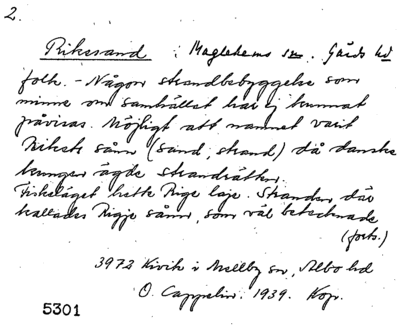 2.
Rikssand i Maglehems sn. Gärds hd
folk. - Någon strandbebyggelse som
minne om samhället har ej kunnat
påvisas. Möjligt att namnet varit
Rikets sånn (sand, strand) då danske
kungen ägde strandrätten.
Fiskeläget hette Rige laje. Stranden där
kallades Rigje sånn, som väl betecknade
(forts.)
3972 Kivik i Mellby sn, Albo hd
O. Cappelin. 1939. Kop.
5301